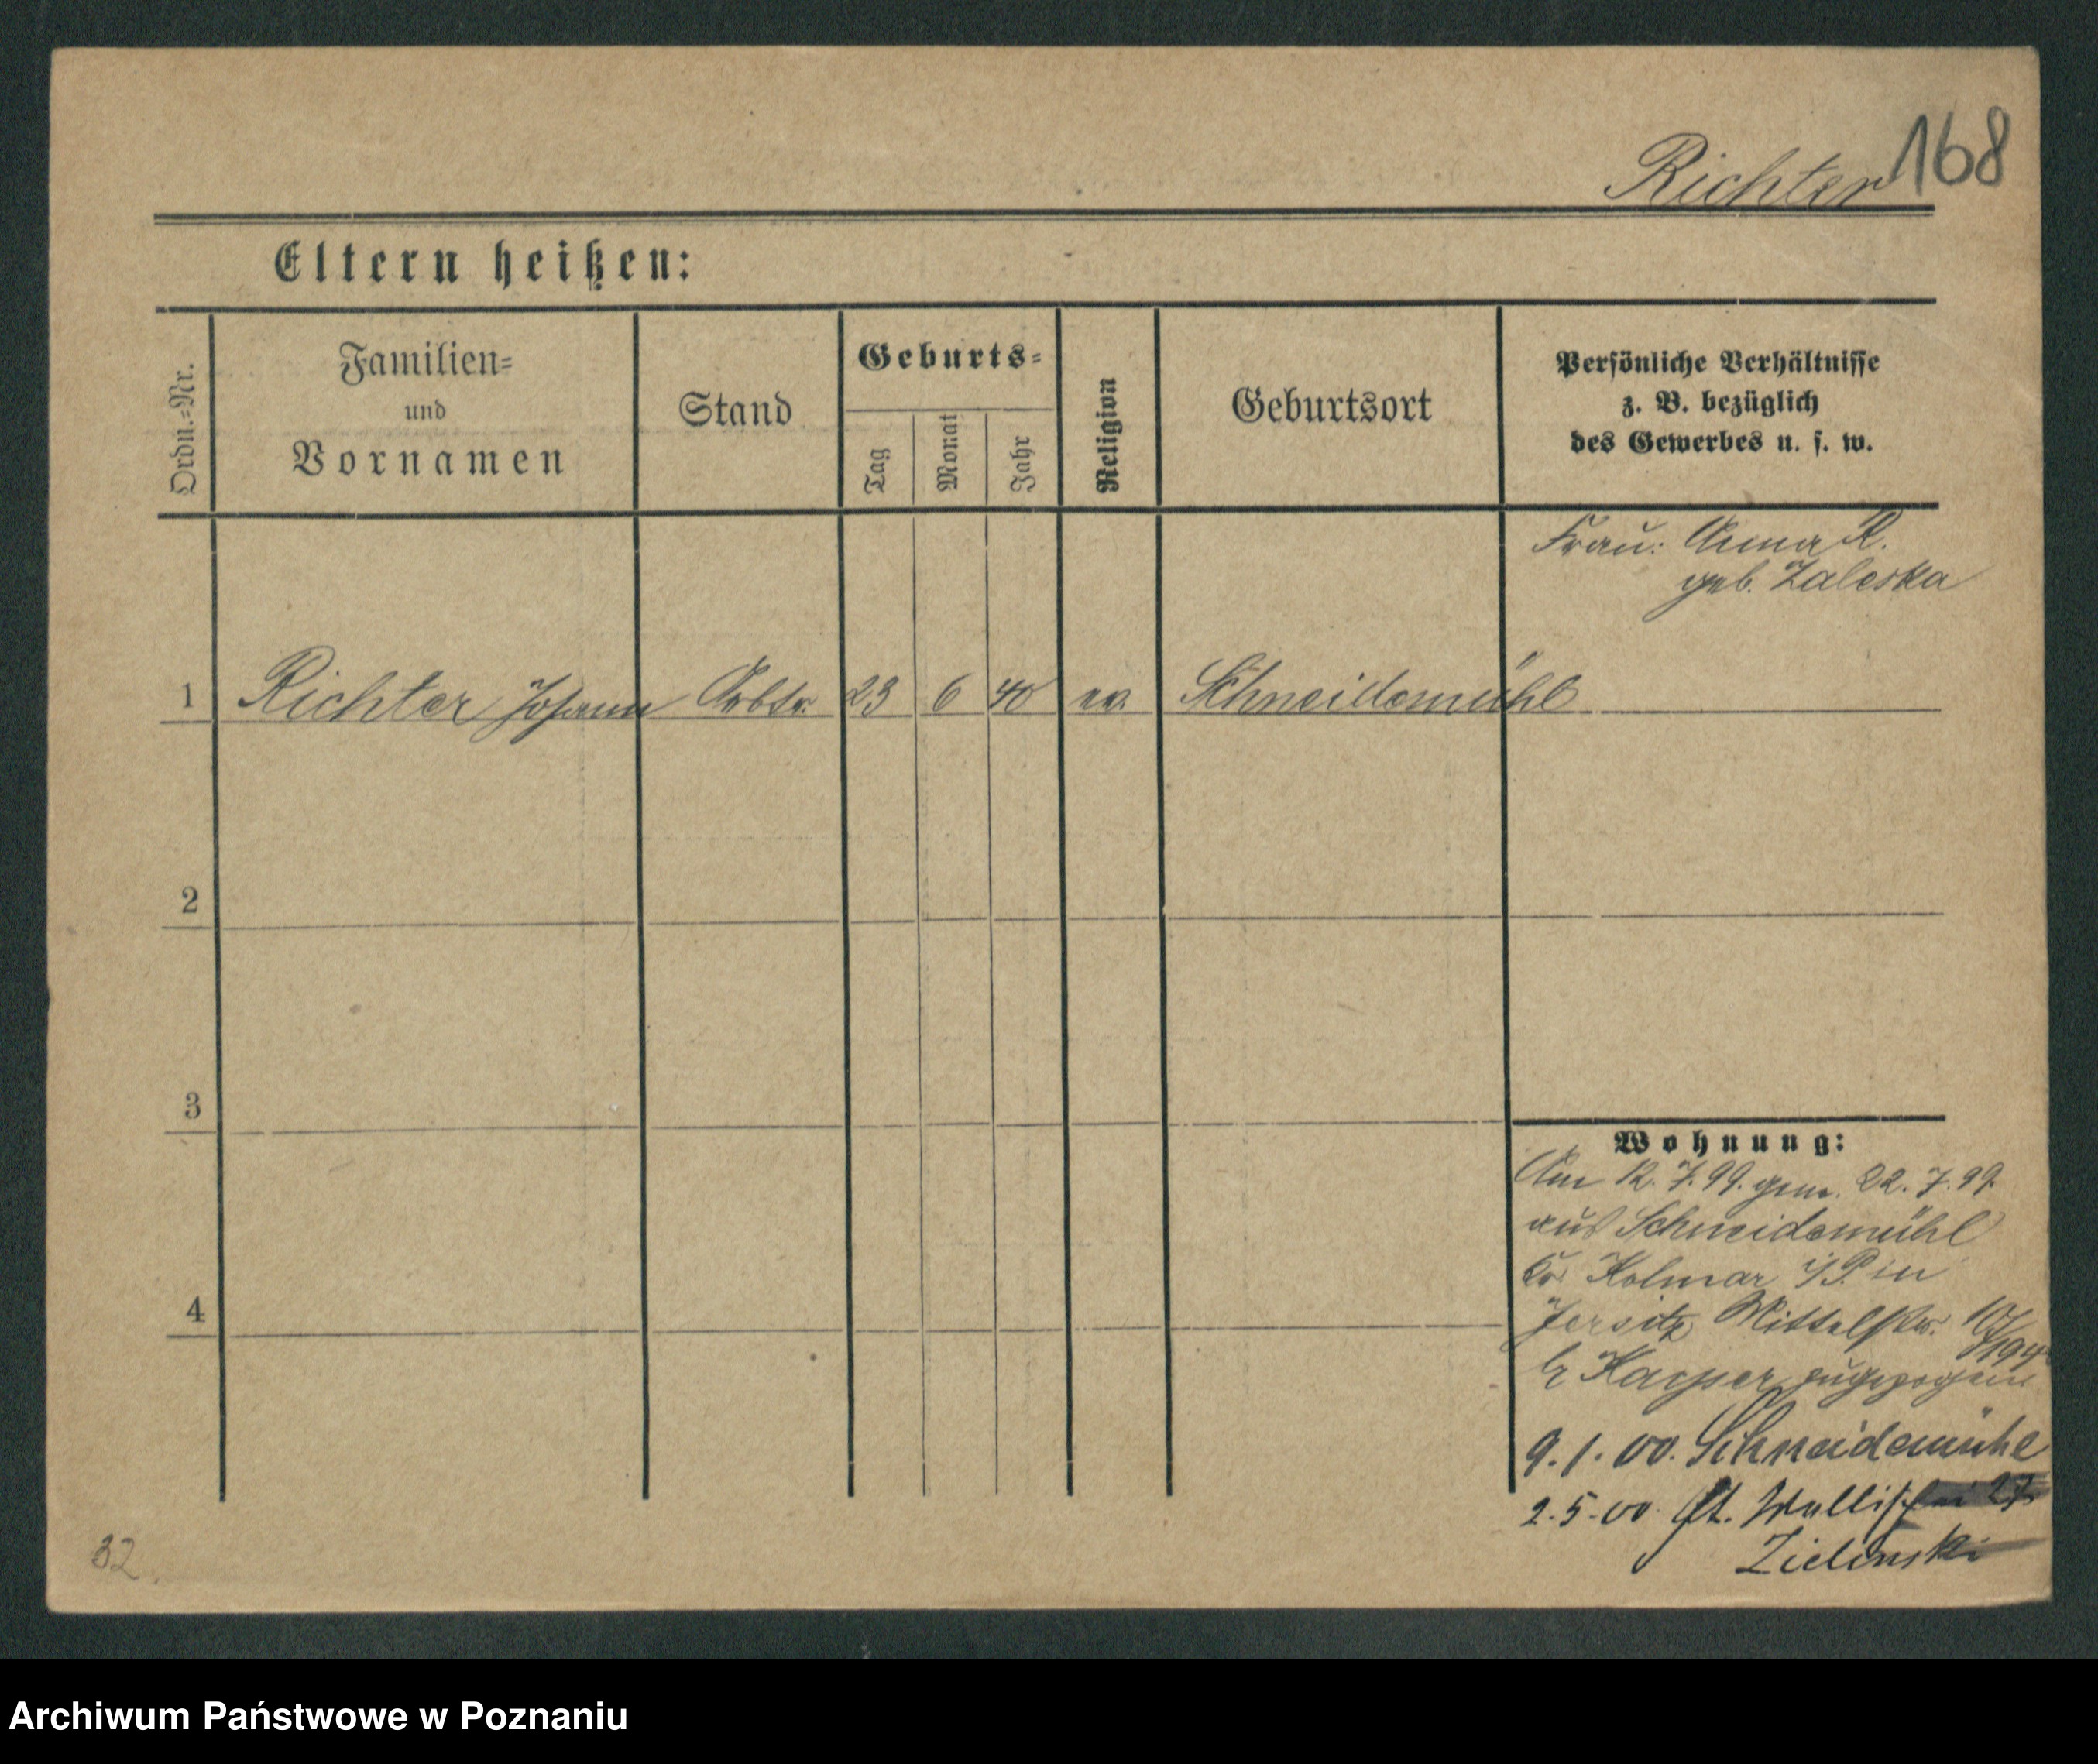 Richter 168
Eltern heißen:
Ordn.=Nr.
Familien=
und
Vornamen
Stand
Geburts=
Tag
Monat
Jahr
Religion
Geburtsort
Persönliche Verhältnisse
z. B. bezüglich
des Gewerbes u. s. w.
Frau: Anna R.
geb. Zaleska
1 Richter Johann Arbtr. 23 6 40 ev. Schneidemühl
2
3
4
Wohnung:
Am 12.7.99. gem. 22.7.99
aus Schneidemühl
Kr. Kolmar i/P. in
Jersitz Mittelstr.
b Kacper zugezogen
9.1.00. Schneidemühl
2.5.00. St. Wallischei 27
Zielinski
32
Archiwum Państwowe w Poznaniu